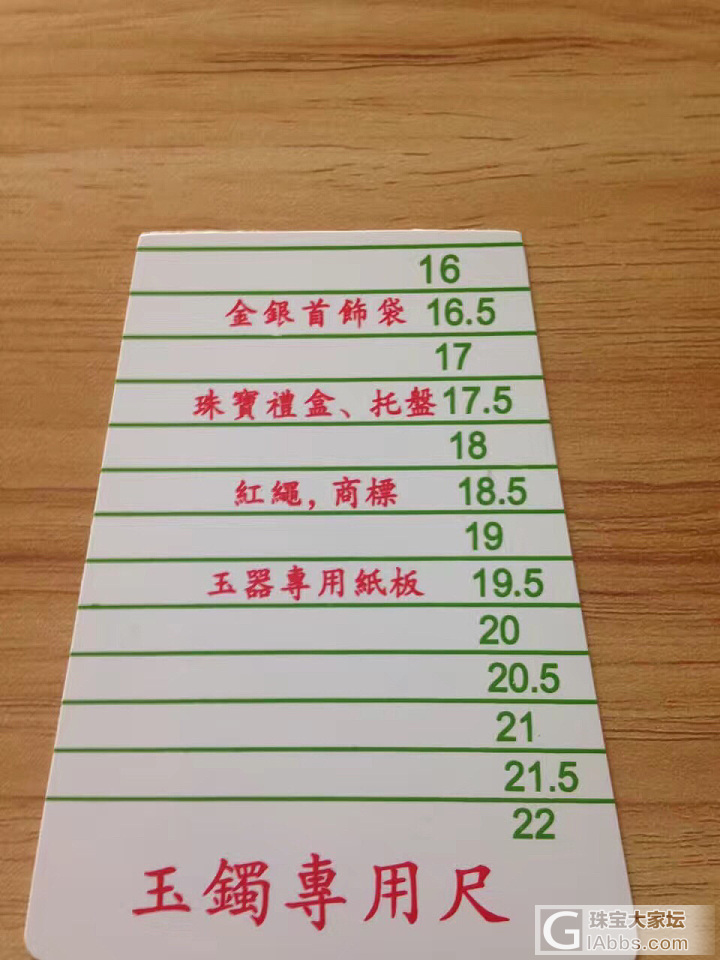 16
金銀首飾袋 16.5
17
珠寶禮盒、托盤 17.5
18
紅繩,商標 18.5
19
玉器專用紙板 19.5
20
20.5
21
21.5
22
玉鐲專用尺
G 珠宝大家坛
GIAbbs.com